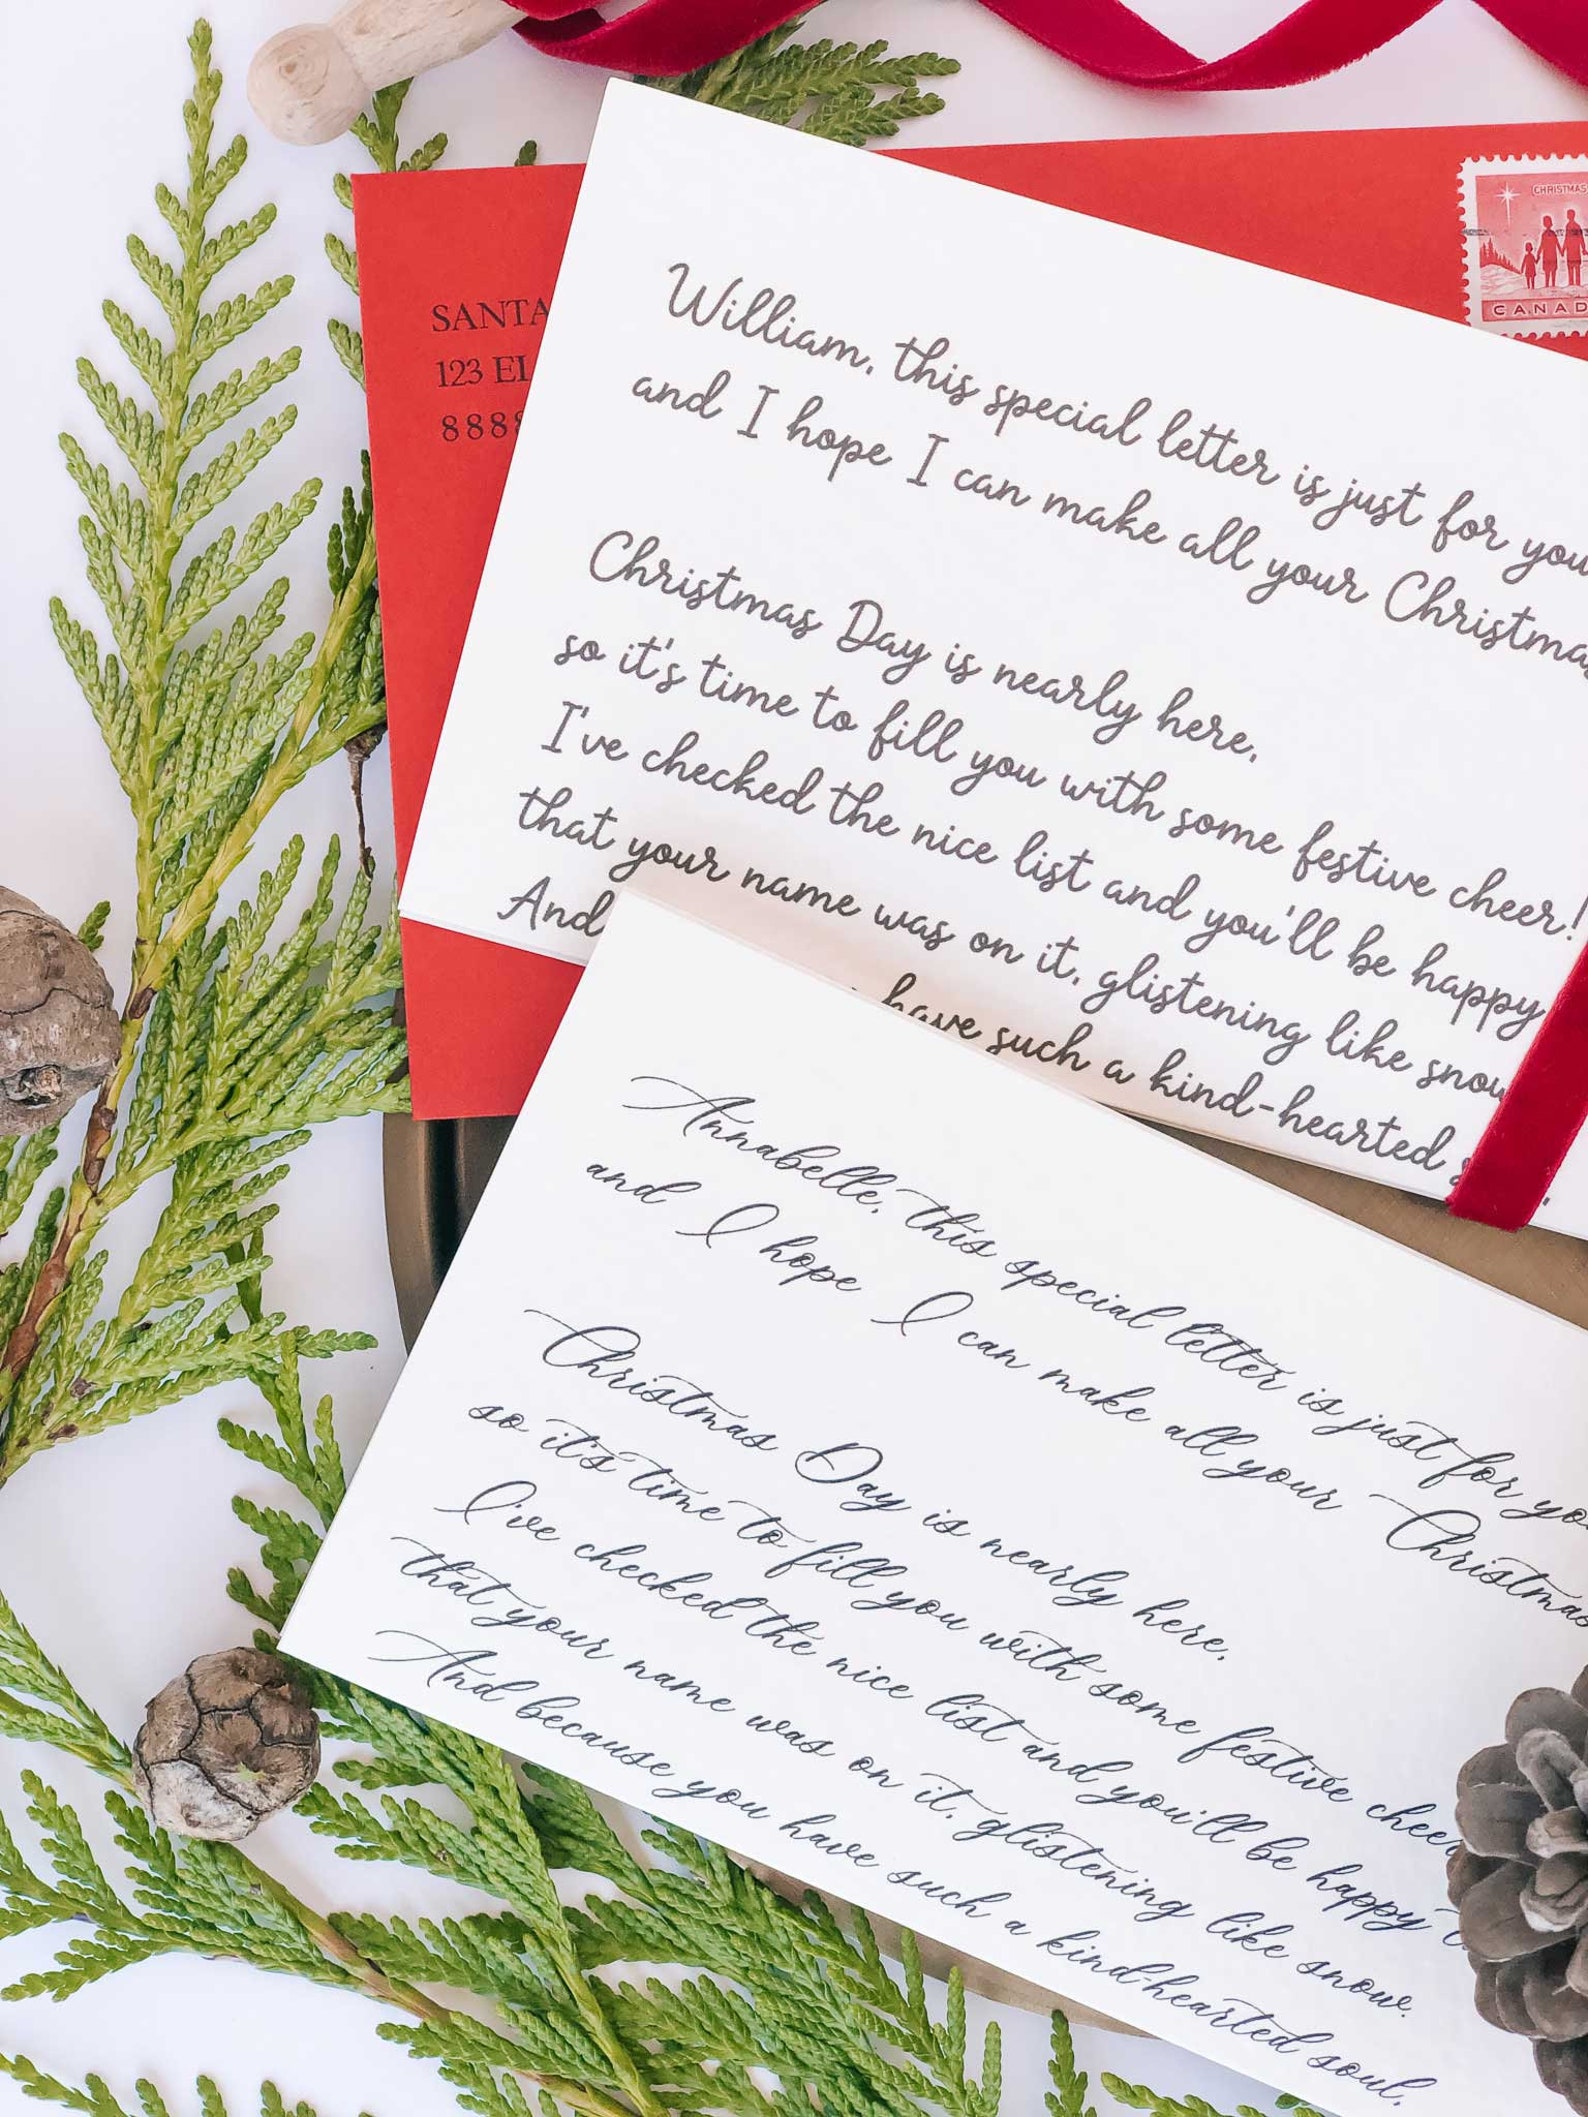 CHRISTMAS
CANAD
SANTA
123 EL
8888
William, this special letter is just for you
and I hope I can make all your Christmas
Christmas Day is nearly here,
so it's time to fill you with some festive cheer!
I've checked the nice list and you'll be happy
that your name was on it, glistening like snow
And have such a kind-hearted
Annabelle, this special letter is just for yo
and I hope I can make all your Christmas
Christmas Day is nearly here,
so it's time to fill you with some festive cheer
I've checked the nice list and you'll be happy t
that your name was on it, glistening like snow.
And because you have such a kind-hearted soul,